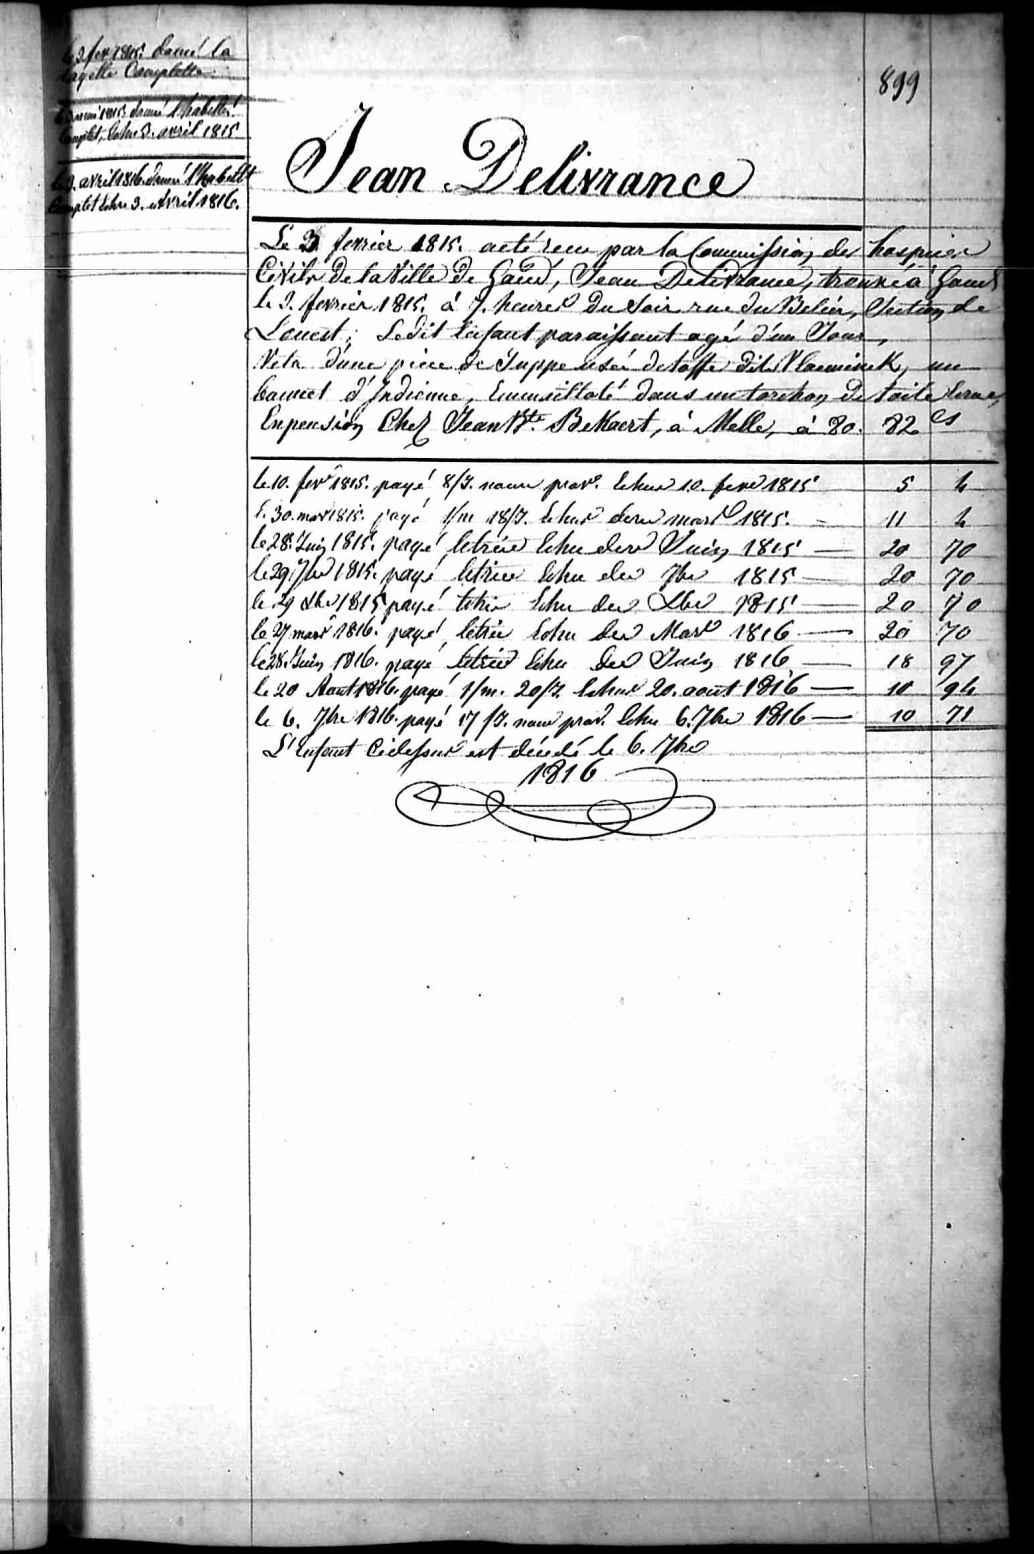 le 3 fevr 1815. donné la
layette Complette.
donné l'habillt
Complet, Echu 3. avril 1815
le 3. avril 1816. donné l'habillt
Complet Echu 3. avril 1816.
899
Jean Delivrance
Le 3 fevrier 1815. acté recu par la Commission des hospices
Civils de la Ville de Gand, Jean Delivrance, trouvé à Gand
le 2. fevrier 1815. à 7. heures du Soir rue du Belier, Section de
Louest; Ledit Enfant paraissant agé d'un Jour,
Vetu d'une piece de Juppe usée detoffe dite Vlaeminck, un
bonnet d'Indienne, Emmailloté dans un torchon de toile
Enpension Chez Jean Bte. Bekaert, à Melle, à 80. 82 cs
le 10. fevr 1815. payé 8/J. nourr prov. Echus 10. fevr 1815 5 4
l. 30. mars 1815. payé 1/m 18/J. Echus derr mars 1815. 11 4
le 28. Juin 1815. payé letrie Echu derr Juin 1815 — 20 70
le 29. 7bre 1815. payé letrie Echu der 7bre 1815 — 20 70
le 29 Xbre 1815 payé letrie Echu der Xbre 1815 — 20 70
le 27 mars 1816. payé letrie Echu der Mars 1816 — 20 70
le 28. Juin 1816. payé letrie Echu der Juin 1816 — 18 97
le 20 Aout 1816. payé 1/m. 20/J. Echus 20. aout 1816 — 10 94
le 6. 7bre 1816. payé 17/J. nourr prov. Echu 6. 7bre 1816 — 10 71
L'Enfant Cidessus est décédé le 6. 7bre
1816